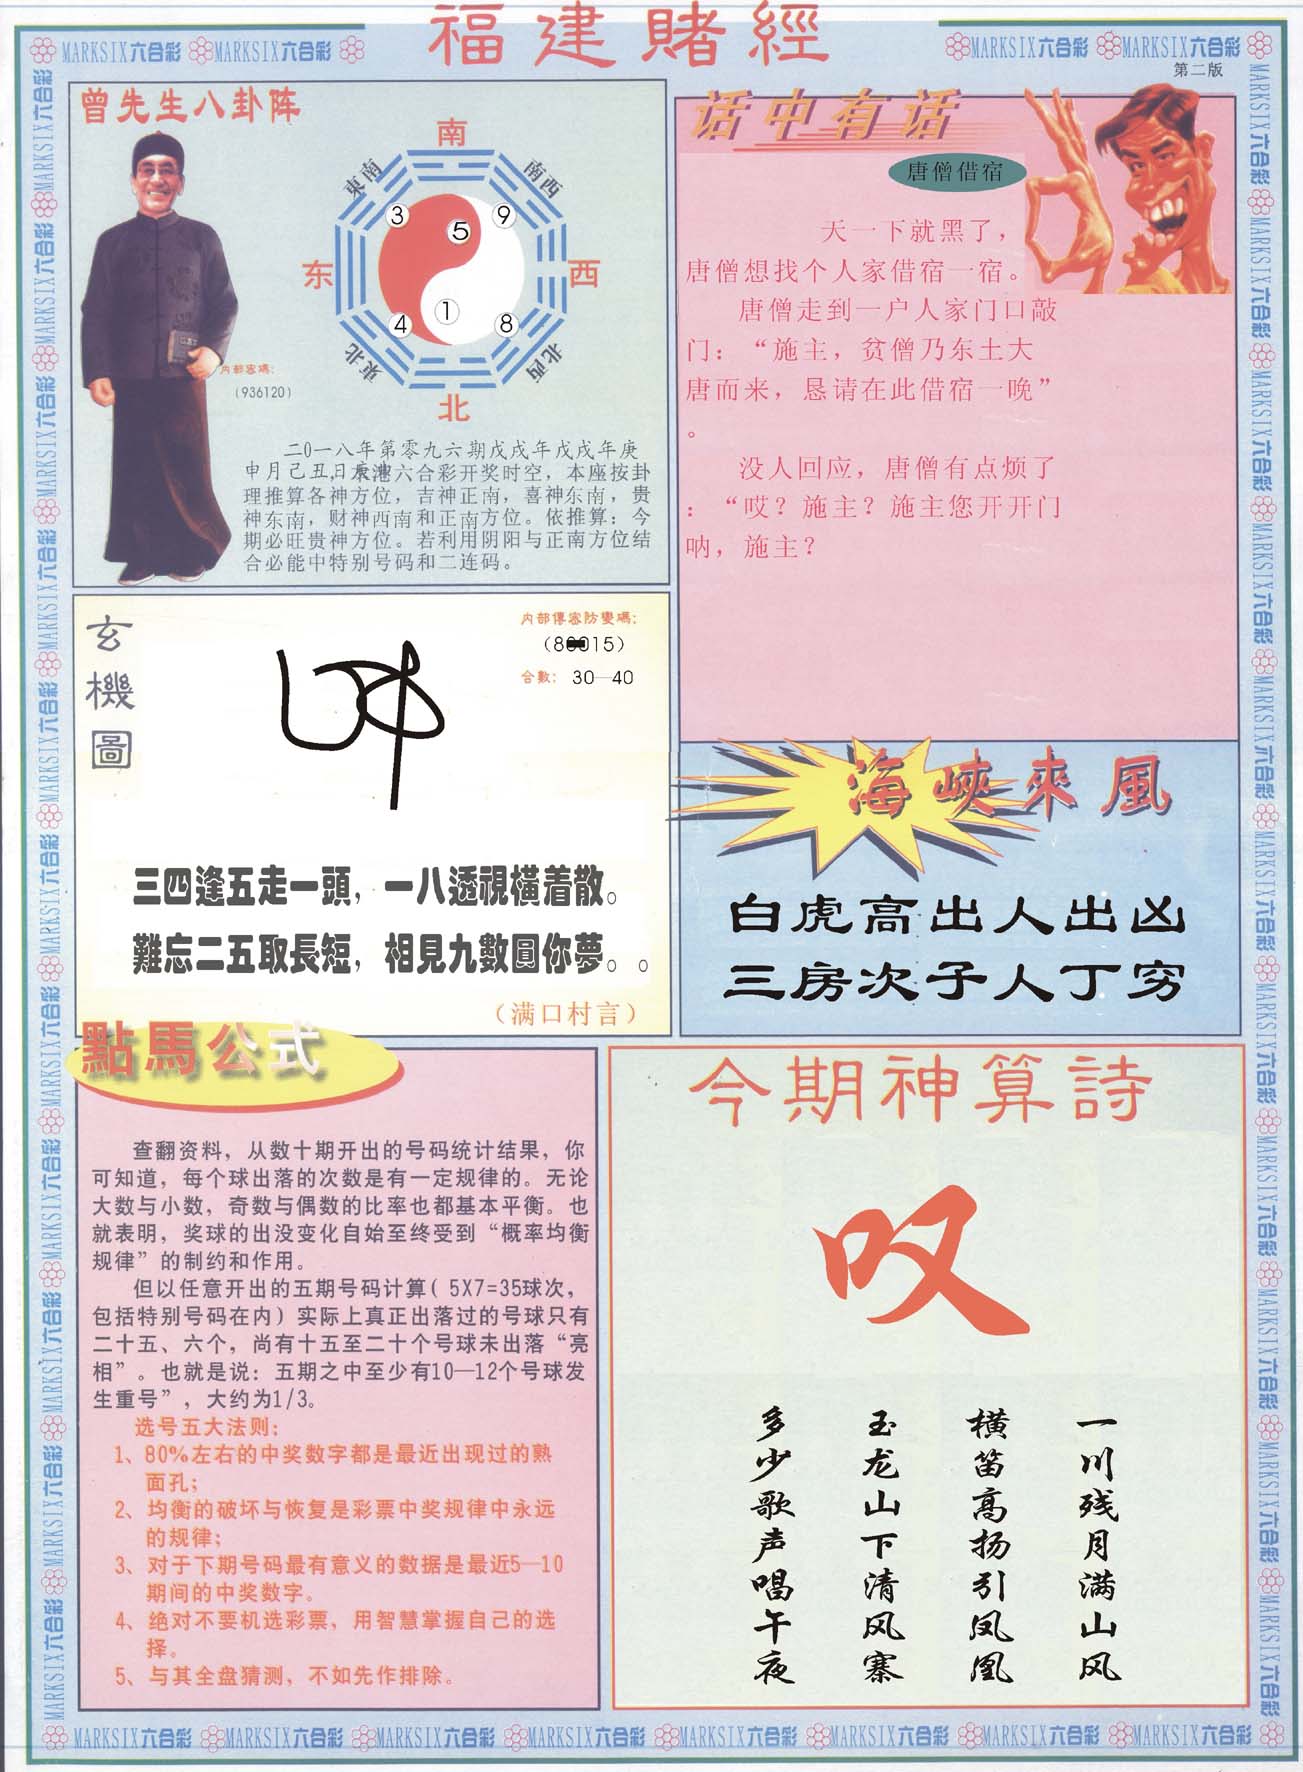 福建賭經
MARKSIX六合彩 MARKSIX六合彩
MARKSIX六合彩 MARKSIX六合彩
第二版
曾先生八卦阵
南
東南
南西
3
9
5
东
西
1
4
8
東北
北西
北
内部密碼:
(936120)
二0一八年第零九六期戊戌年戊戌年庚
申月己丑日
六合彩开奖时空，本座按卦
理推算各神方位，吉神正南，喜神东南，贵
神东南，财神西南和正南方位。依推算：今
期必旺贵神方位。若利用阴阳与正南方位结
合必能中特别号码和二连码。
话中有话
唐僧借宿
天一下就黑了，
唐僧想找个人家借宿一宿。
唐僧走到一户人家门口敲
门：“施主，贫僧乃东土大
唐而来，恳请在此借宿一晚”
。
没人回应，唐僧有点烦了
：“哎？施主？施主您开开门
呐，施主？
玄機圖
内部傳密防變碼:
15)
合數: 30—40
三四逢五走一頭，一八透視橫着散。
難忘二五取長短，相見九數圓你夢。。
（满口村言）
海峽來風
白虎高出人出凶
三房次子人丁穷
點馬公式
查翻资料，从数十期开出的号码统计结果，你
可知道，每个球出落的次数是有一定规律的。无论
大数与小数，奇数与偶数的比率也都基本平衡。也
就表明，奖球的出没变化自始至终受到“概率均衡
规律”的制约和作用。
但以任意开出的五期号码计算( 5X7=35球次，
包括特别号码在内) 实际上真正出落过的号球只有
二十五、六个，尚有十五至二十个号球未出落“亮
相”。也就是说：五期之中至少有10—12个号球发
生重号”，大约为1/3。
选号五大法则：
1、80%左右的中奖数字都是最近出现过的熟
面孔；
2、均衡的破坏与恢复是彩票中奖规律中永远
的规律；
3、对于下期号码最有意义的数据是最近5—10
期间的中奖数字。
4、绝对不要机选彩票，用智慧掌握自己的选
择。
5、与其全盘猜测，不如先作排除。
今期神算詩
叹
一川残月满山风
横笛高扬引凤凰
玉龙山下清风寨
多少歌声唱午夜
MARKSIX六合彩 MARKSIX六合彩 MARKSIX六合彩 MARKSIX六合彩 MARKSIX六合彩 MARKSIX六合彩 MARKSIX六合彩 MARKSIX六合彩